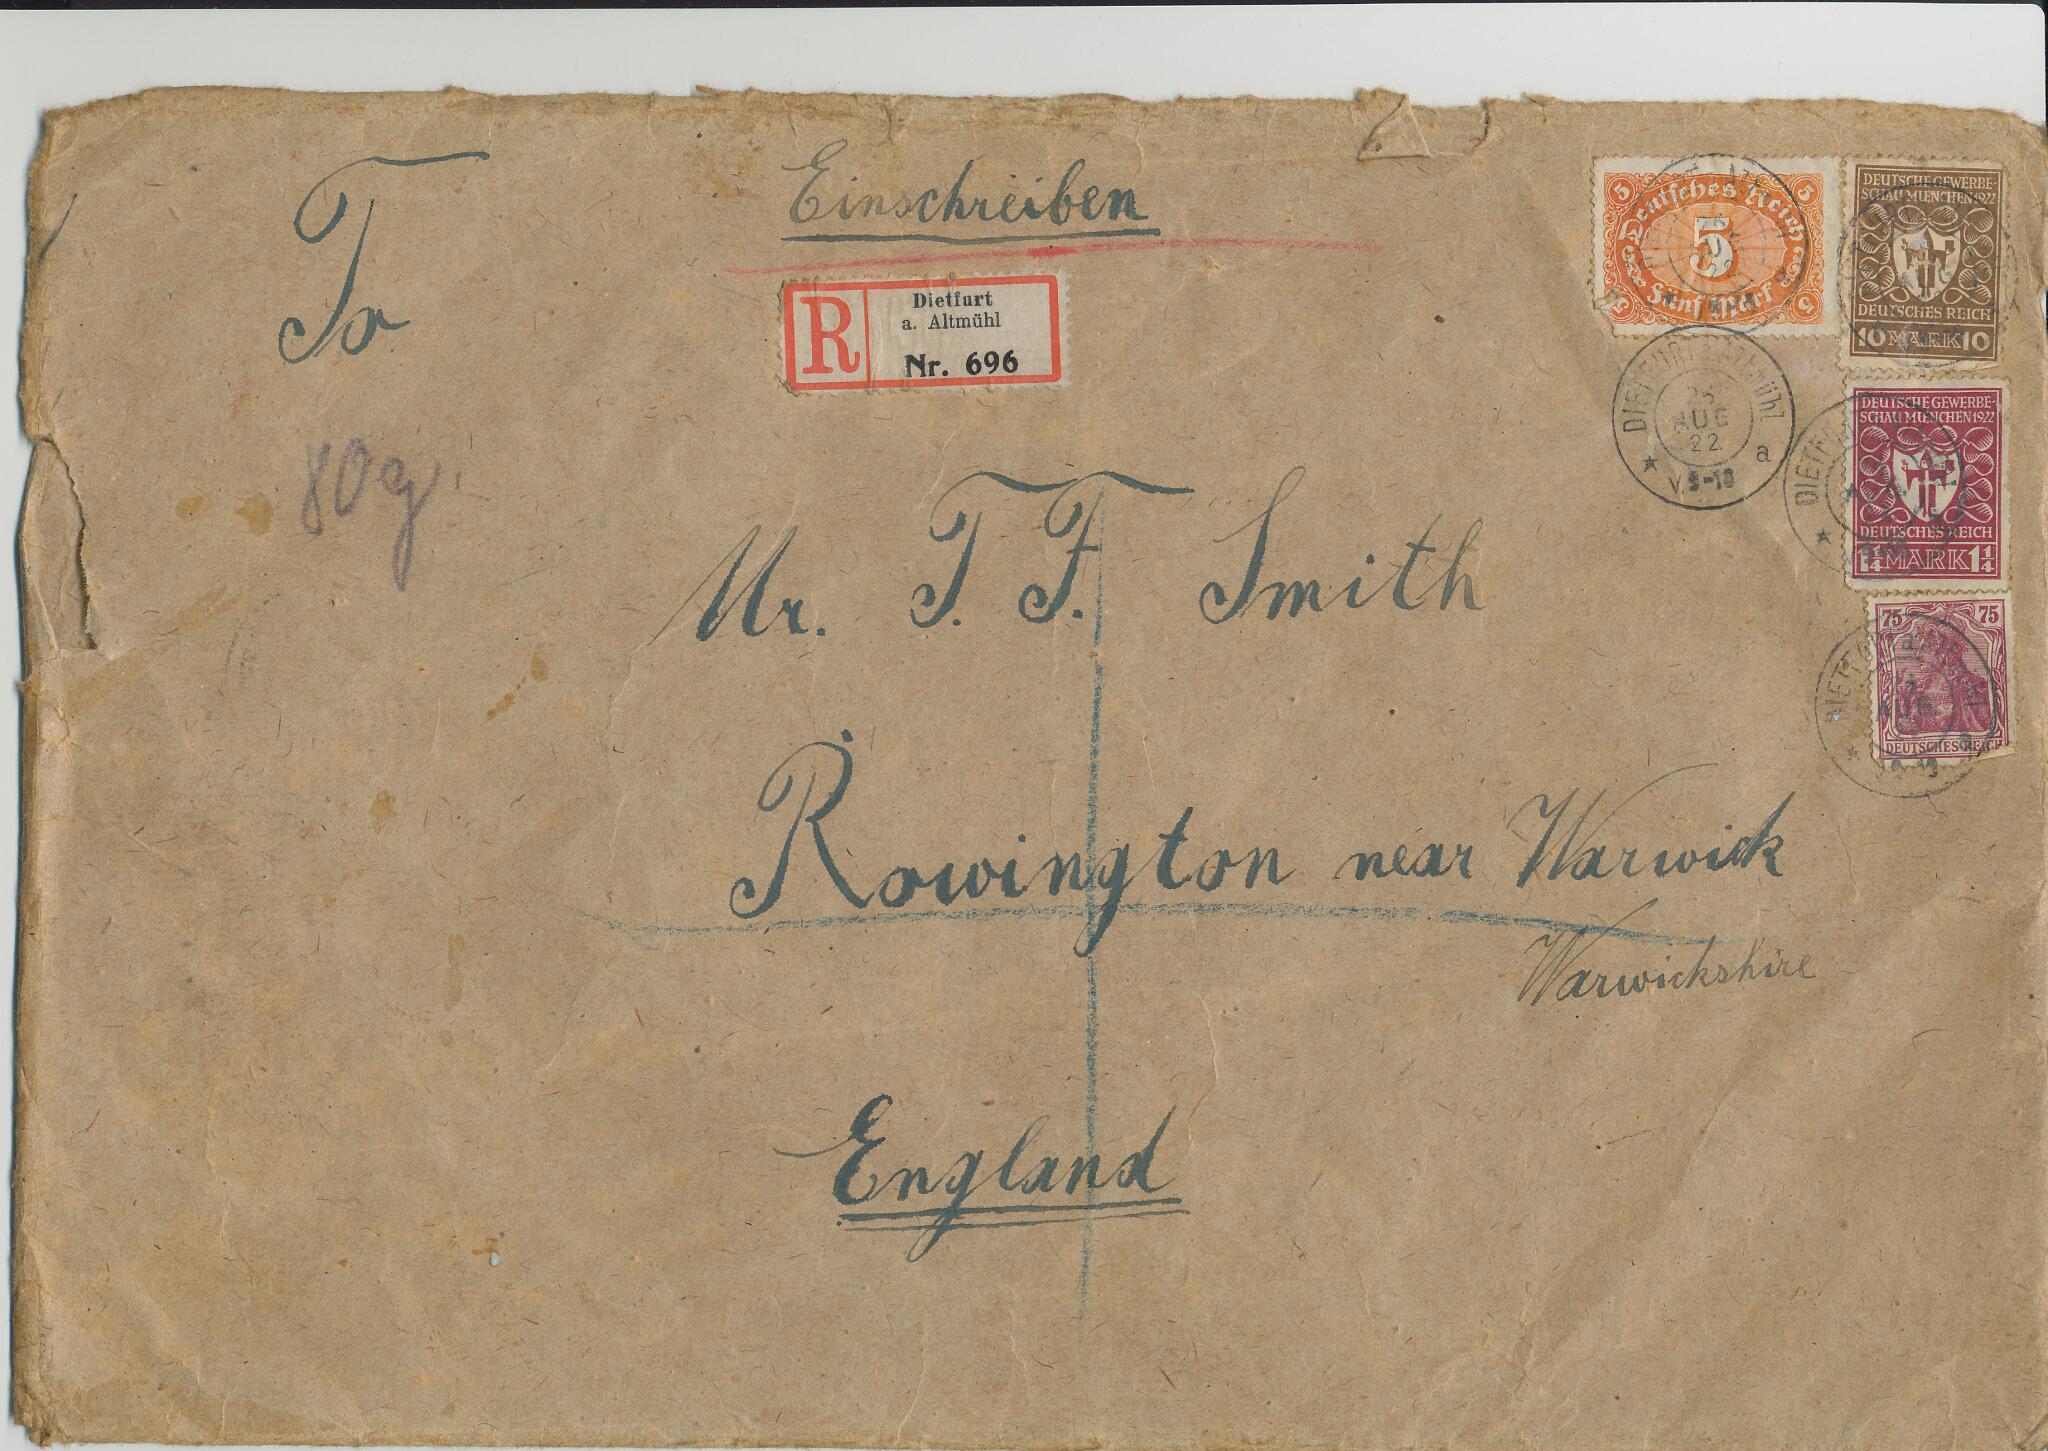 To
Einschreiben
R
Dietfurt
a. Altmühl
Nr. 696
80g.
5 Deutsches Reich 5
5
5 Fünf Mark 5
DEUTSCHE GEWERBE-
SCHAU MUENCHEN 1922
DEUTSCHES REICH
10 MARK 10
DIETFURT a. Altmühl
AUG
22
V. 9-10
a
DEUTSCHE GEWERBE-
SCHAU MUENCHEN 1922
DEUTSCHES REICH
1 1/4 MARK 1 1/4
75 75
DEUTSCHES REICH
Mr. T. F. Smith
Rowington near Warwick
Warwickshire
England